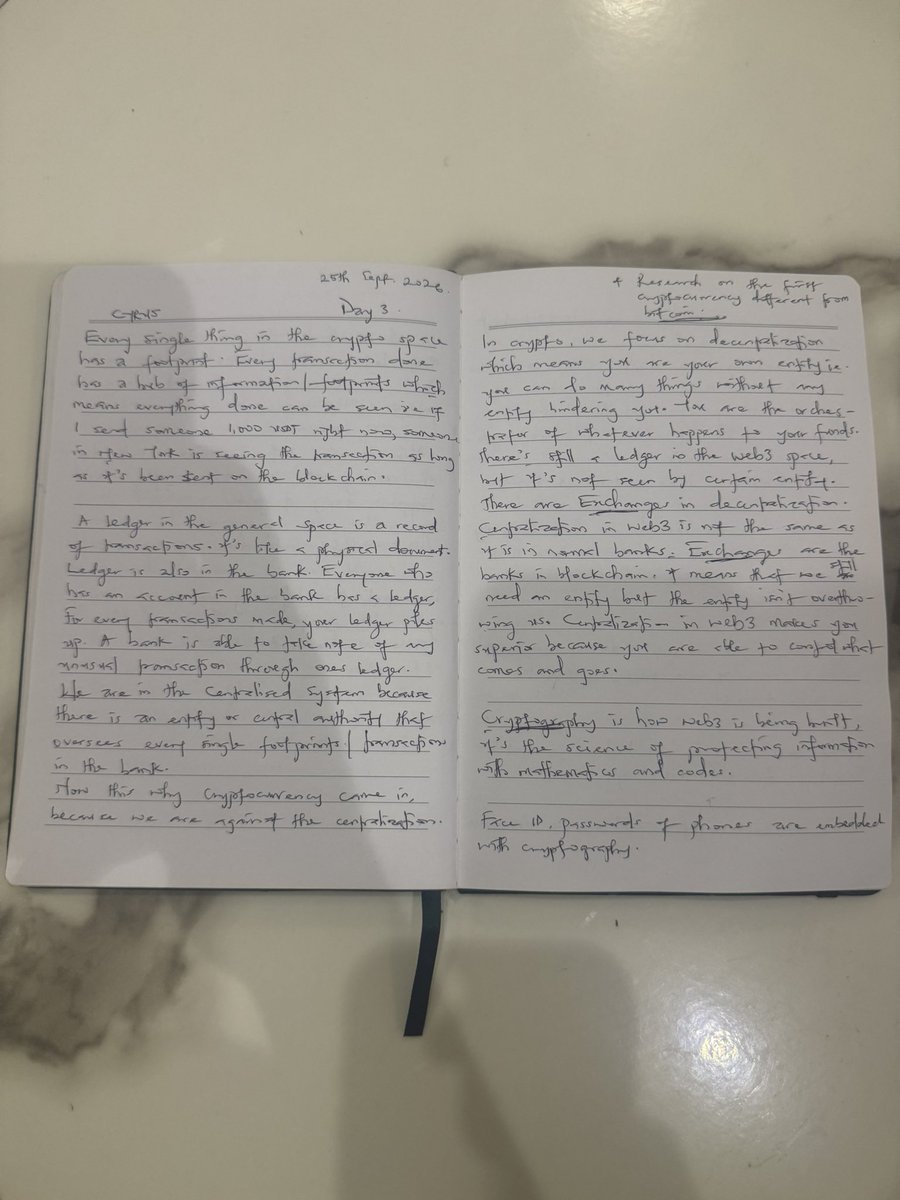 25th Sept. 2026.
CYRUS Day 3.
Every single thing in the crypto space
has a footprint. Every transaction done
has a hub of information/footprints which
means everything done can be seen ie if
I sent someone 1,000 USDT right now, someone
in New York is seeing the transaction as long
as it's been sent on the blockchain.
A ledger in the general space is a record
of transactions. it's like a physical document.
Ledger is also in the bank. Everyone who
has an account in the bank has a ledger,
for every transactions made, your ledger piles
up. A bank is able to take note of any
unusual transaction through ones ledger.
We are in the Centralised System because
there is an entity or central authority that
oversees every single footprints/transaction
in the bank.
Now this why Cryptocurrency came in,
because we are against the centralization.
* Research on the first
cryptocurrency different from
bitcoin.
In crypto, we focus on decentralization
which means you are your own entity ie.
you can do many things without any
entity hindering you. You are the orches-
trator of whatever happens to your funds.
There's still a ledger in the web3 space,
but it's not seen by certain entity.
There are Exchanges in decentralization.
Centralization in web3 is not the same as
it is in normal banks. Exchanges are the
banks in blockchain. it means that we still
need an entity but the entity isn't overthro-
wing us. Centralization in web3 makes you
superior because you are able to control what
comes and goes.
Cryptography is how web3 is being built,
it's the science of protecting information
with mathematics and codes.
Face ID, passwords of phones are embedded
with cryptography.